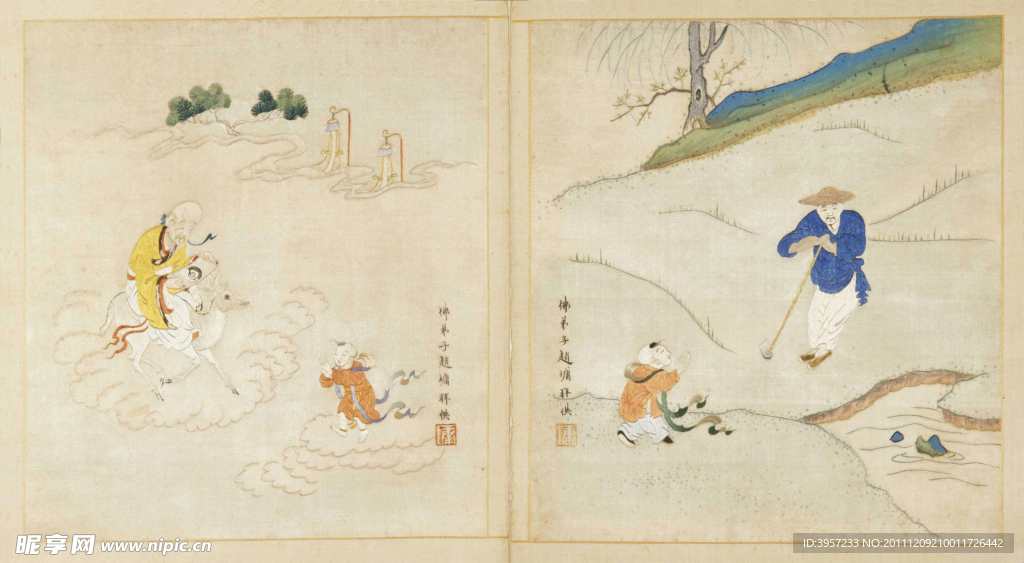 佛弟子趙墉拜供
佛弟子趙墉拜供
昵享网 www.nipic.cn
ID:3957233 NO:20111209210011726442